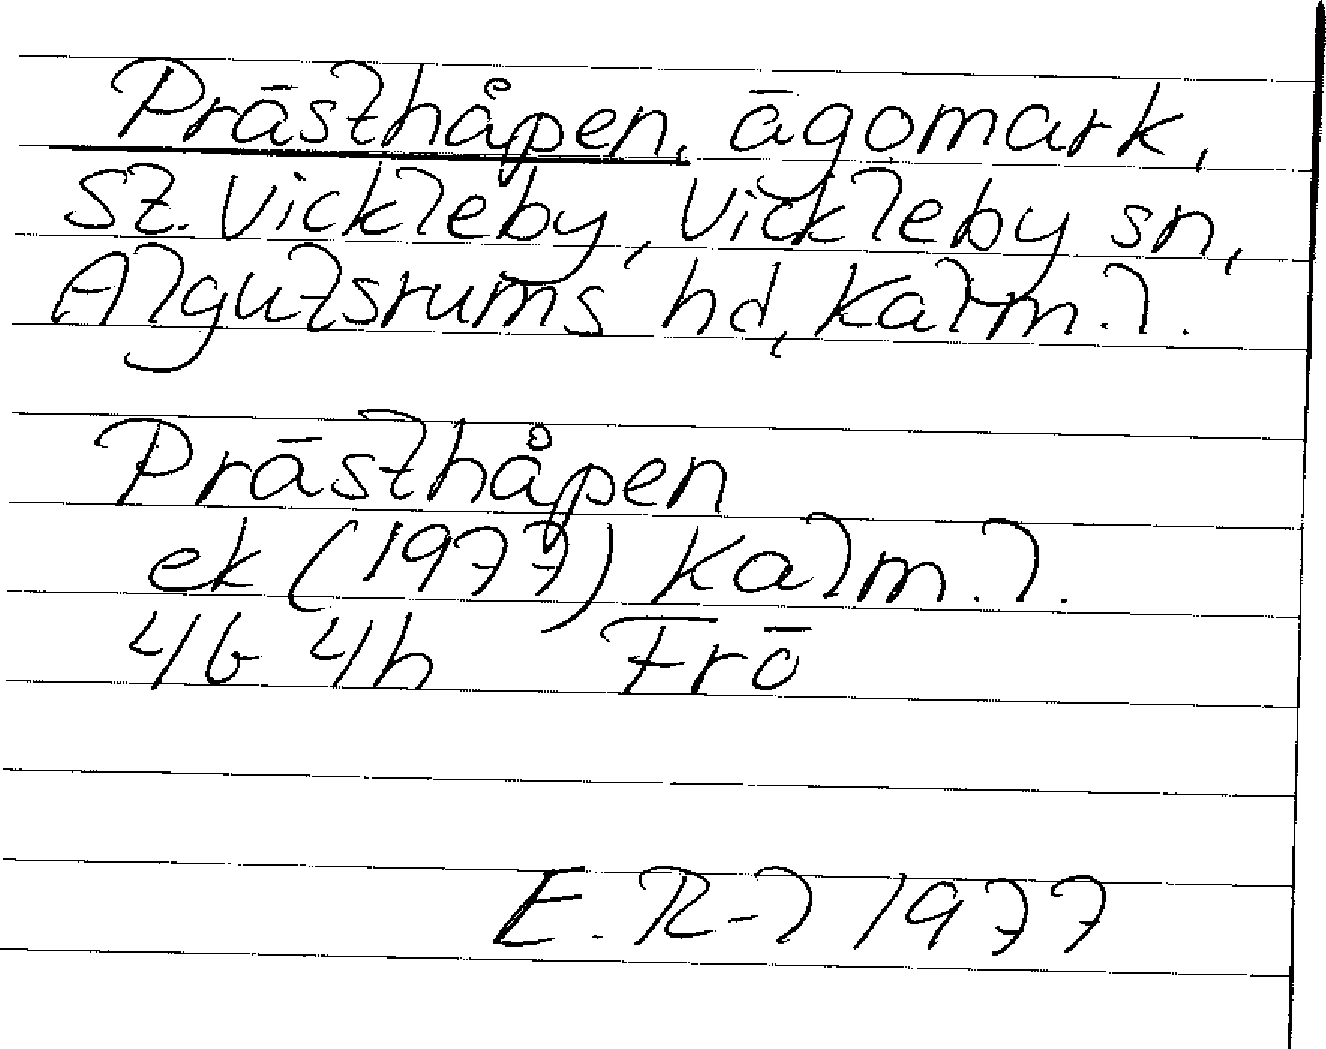 Prästhåpen, ägomark,
St. Vickleby, Vickleby sn,
Algutsrums hd, Kalm. l.
Prästhåpen
ek (1977) Kalm. l.
4G 4h Frö
E. R-l 1977